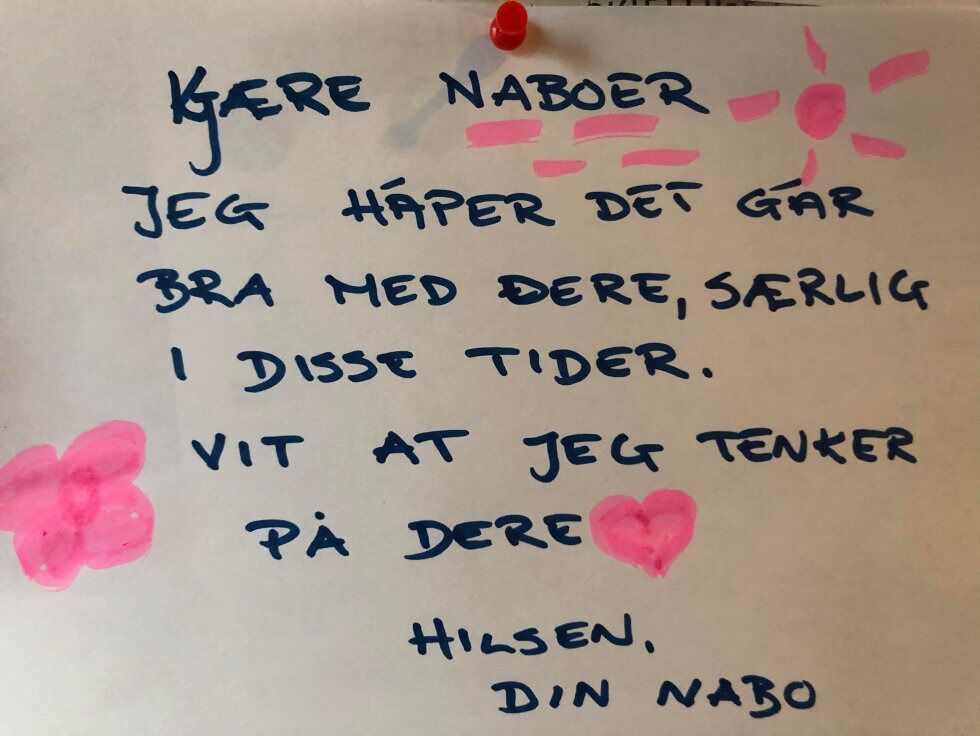 KJÆRE NABOER
JEG HÅPER DET GÅR
BRA MED DERE, SÆRLIG
I DISSE TIDER.
VIT AT JEG TENKER
PÅ DERE
HILSEN.
DIN NABO